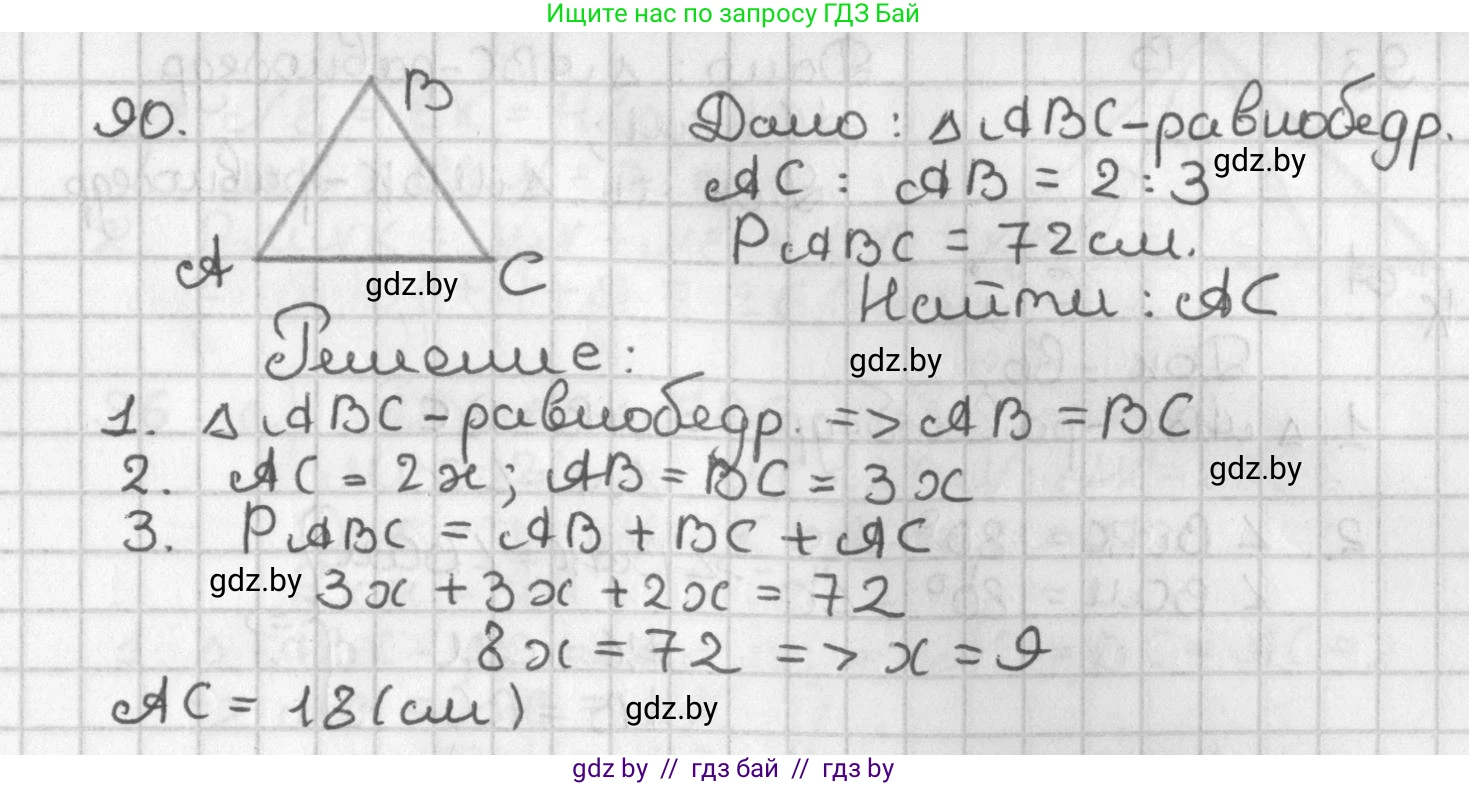 Ищите нас по запросу ГДЗ Бай
90.
B
A
C
gdz.by
Дано: △ABC-равнобедр.
gdz.by
AC : AB = 2:3
PABC = 72см.
Найти: AC
Решение:
gdz.by
1. △ABC-равнобедр. => AB = BC
2. AC = 2x; AB = BC = 3x
gdz.by
3. PABC = AB + BC + AC
gdz.by
3x + 3x + 2x = 72
8x = 72 => x = 9
AC = 18(см)
gdz.by
gdz by // гдз бай // гдз by